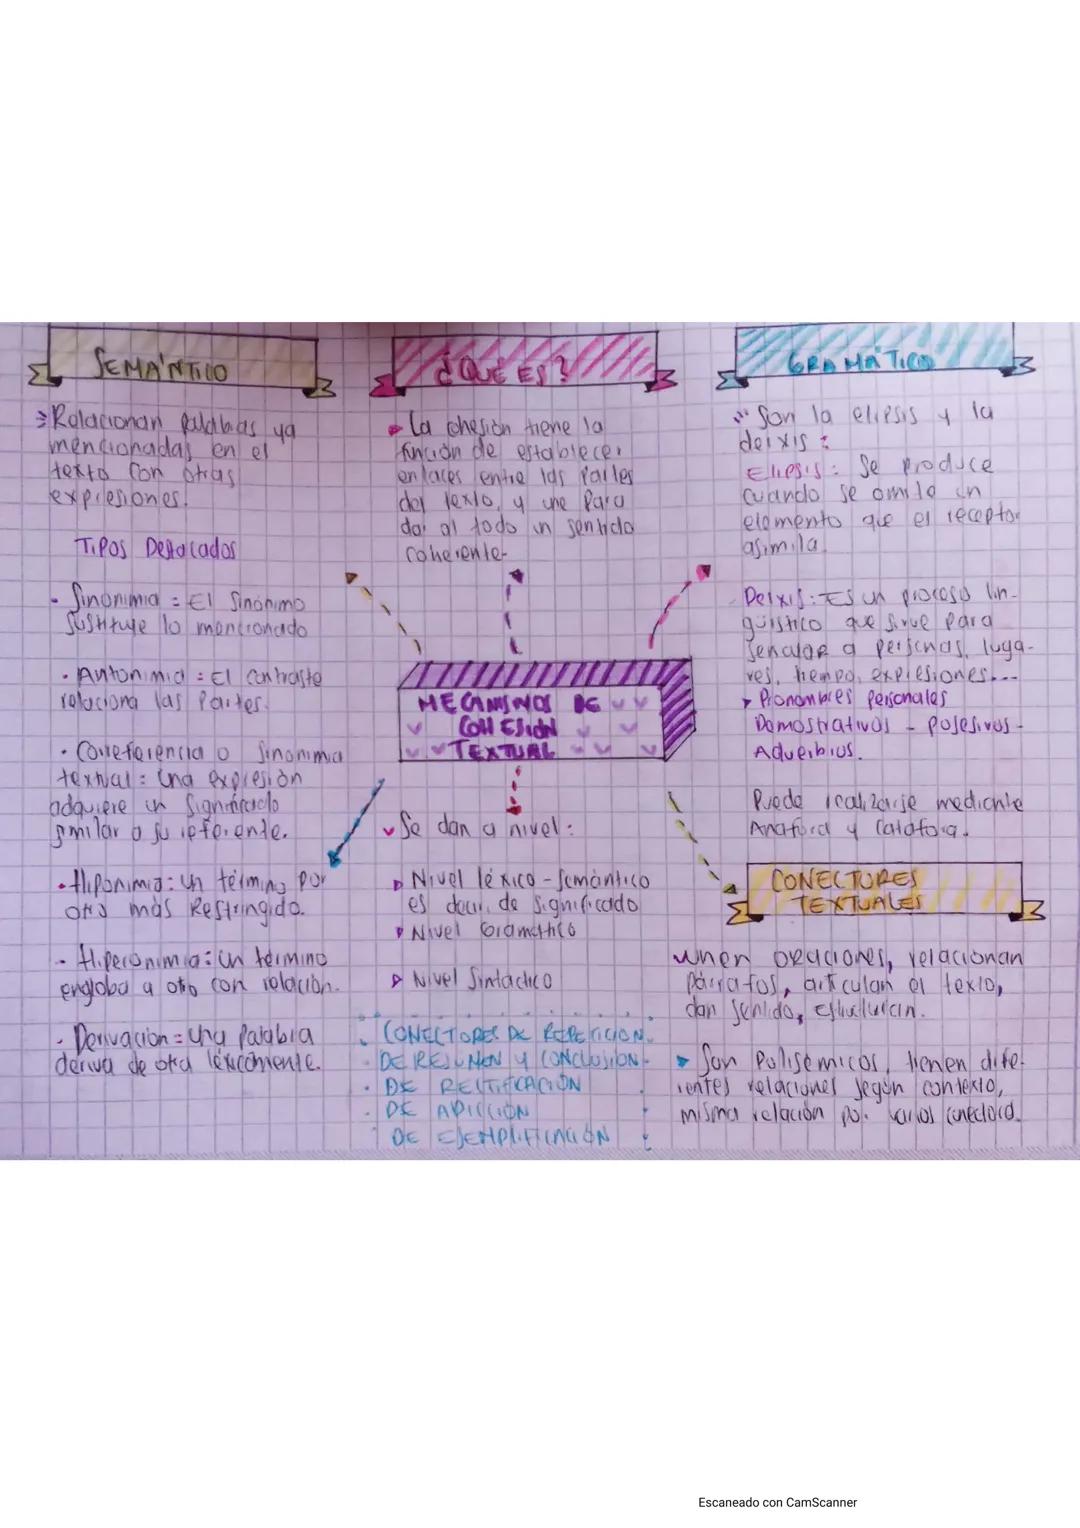 SEMÁNTICO
Relacionan palabras ya
mencionadas en el
texto con otras
expresiones.
Tipos Destacados
- Sinónimia = El Sinónimo
sustituye lo mencionado
· Antonimia = El contraste
relaciona las Partes.
· Correferencia o Sinonimia
textual = Una expresión
adquiere un significado
similar a su referente.
· Hiponimia: un término por
otro más Restringido.
- Hiperonimia: un término
engloba a otro con relación.
· Derivación = Una Palabra
deriva de otra léxicamente.
¿QUÉ ES?
La cohesión tiene la
función de establecer
enlaces entre las partes
del texto, y une Para
dar al todo un sentido
coherente-
MECANISMOS DE
COHESIÓN
TEXTUAL
Se dan a nivel:
Nivel léxico - semántico
es decir, de significado
Nivel Gramático
Nivel Sintáctico
· CONECTORES DE REPETICIÓN.
- DE RESUMEN Y CONCLUSIÓN-
· DE RECTIFICACIÓN
- DE ADICCIÓN
DE EJEMPLIFICACIÓN
GRAMÁTICO
Son la elipsis y la
deixis:
Elipsis: Se produce
cuando se omite un
elemento que el receptor
asimila.
Deixis: Es un proceso lin-
güístico que sirve para
señalar a personas, luga-
res, tiempo, expresiones...-
Pronombres personales
Demostrativos - posesivos -
Adverbios.
Puede realizarse mediante
Anáfora y Catáfora.
CONECTORES
TEXTUALES
unen oraciones, relacionan
párrafos, articulan el texto,
dan sentido, estructuran.
Son Polisémicos, tienen dife-
rentes relaciones según contexto,
misma relación por varios
Escaneado con CamScanner